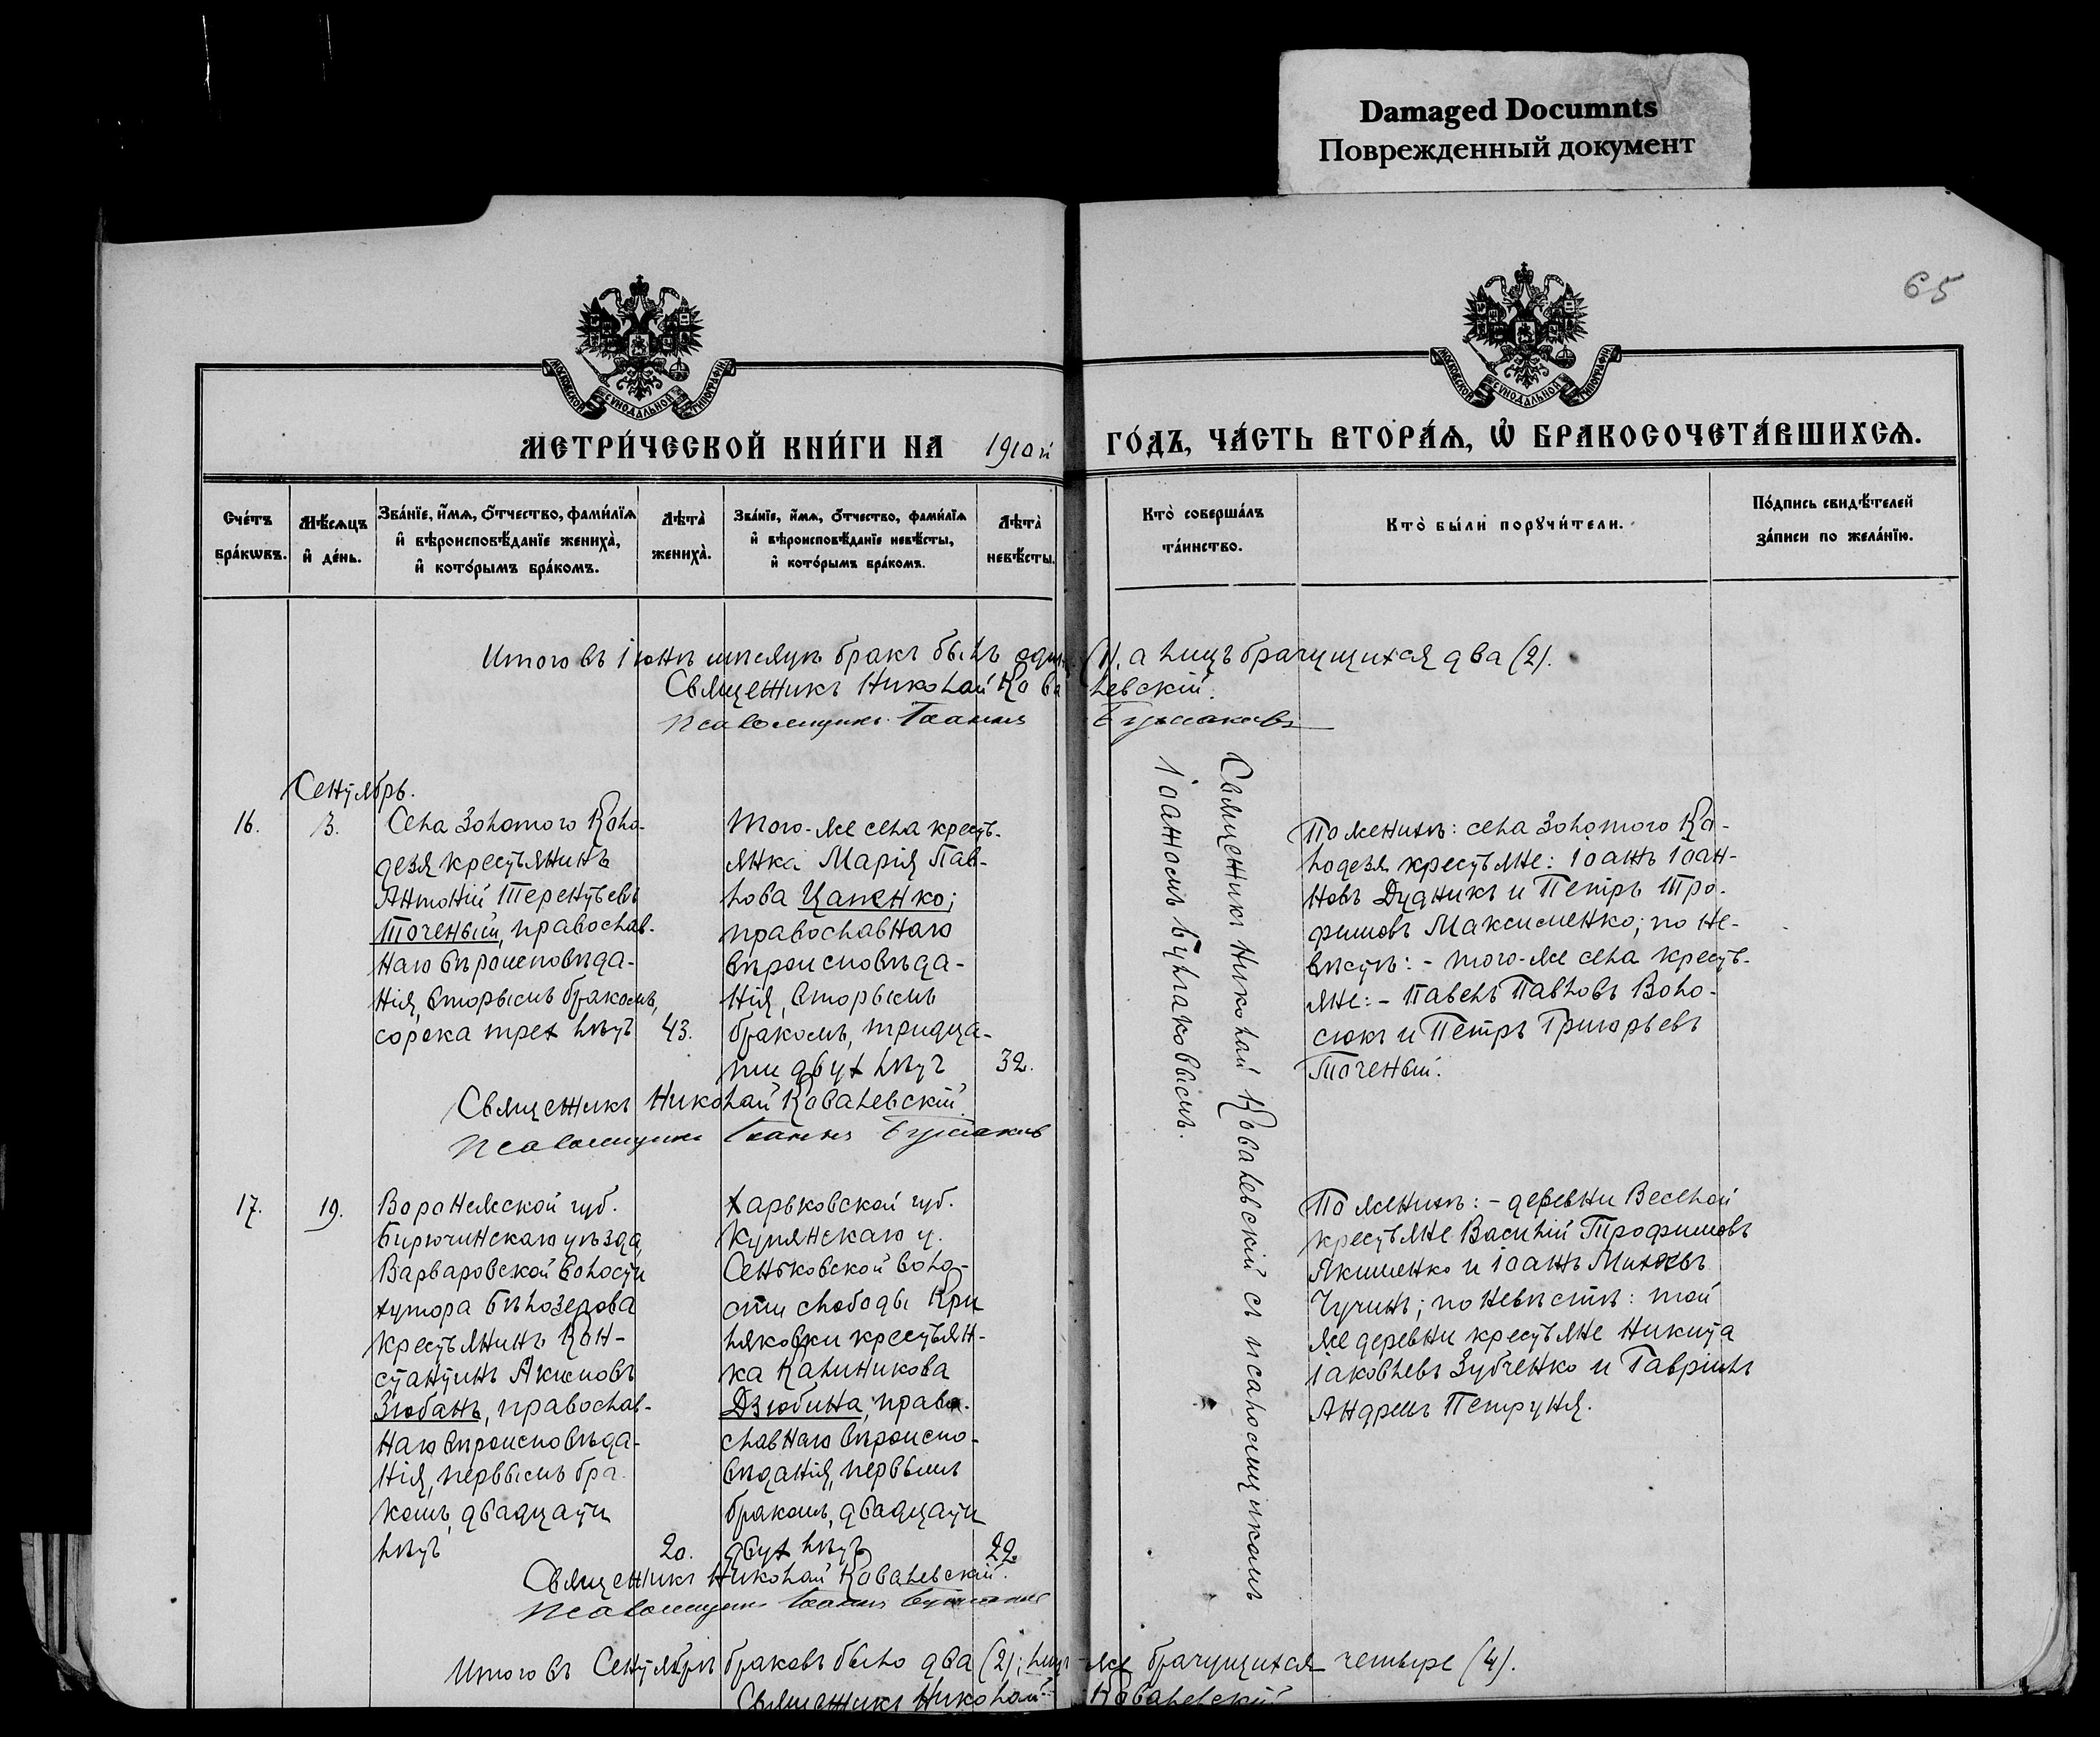 Damaged Documnts
Поврежденный документ
65
МОСКОВСКОЙ СѴНОДАЛЬНОЙ ТИПОГРАФІИ
МОСКОВСКОЙ СѴНОДАЛЬНОЙ ТИПОГРАФІИ
МЕТРИ́ЧЕСКОЙ КНИ́ГИ НА 1910й ГО́ДЪ, ЧА́СТЬ ВТОРА́Ѧ, Ѽ БРАКОСОЧЕТА́ВШИХСѦ.
Сче́тъ
бра́кѡвъ.
Мѣ́сѧцъ
и҆ де́нь.
Зва́нїе, и҆́мѧ, о҆́тчество, фами́лїѧ
и҆ вѣроисповѣ́данїе жениха̀,
и҆ кото́рымъ бра́комъ.
Лѣта̀
жениха̀.
Зва́нїе, и҆́мѧ, о҆́тчество, фами́лїѧ
и҆ вѣроисповѣ́данїе невѣ́сты,
и҆ кото́рымъ бра́комъ.
Лѣта̀
невѣ́сты.
Кто̀ соверша́лъ
та́инство.
Кто̀ бы́ли порꙋчи́тели.
По́дпись свидѣ́телей
за́писи по жела́нїю.
Итого въ Іюнѣ мѣсяцѣ бракъ былъ одинъ (1), а лицъ брачущихся два (2).
Священникъ Николай Ковалевскій.
Псаломщикъ Іоаннъ Булгаковъ
Сентябрь.
16.
3.
Села Золотого Коло-
дезя крестьянинъ
Антоній Терентьевъ
Точеный, православ-
наго вѣроисповѣда-
нія, вторымъ бракомъ,
сорока трех лѣтъ
43.
Того-же села кресть-
янка Марія Пав-
лова Цапенко;
православнаго
вѣроисповѣда-
нія, вторымъ
бракомъ, тридца-
ти двухъ лѣтъ
32.
Священникъ Николай Ковалевскій с псаломщикомъ
Іоанномъ Булгаковымъ.
По женихѣ: села Золотого Ко-
лодезя крестьяне: Іоаннъ Іоан-
новъ Дудникъ и Петръ Тро-
фимовъ Максименко; по не-
вѣстѣ: - того-же села кресть-
яне: - Павелъ Павловъ Воло-
сюкъ и Петръ Григорьевъ
Точеный.
Священникъ Николай Ковалевскій.
Псаломщикъ Іоаннъ Булгаковъ
17.
19.
Воронежской губ.
Бирючинскаго уѣзда,
Варваровской волости
хутора Бѣлозерова
крестьянинъ Кон-
стантинъ Акимовъ
Зюбанъ, православ-
наго вѣроисповѣда-
нія, первымъ бра-
комъ, двадцати
лѣтъ
20.
Харьковской губ.
Купянскаго у.
Сеньковской воло-
сти слободы Кри
ляковки крестьян-
ка Калиникова
Дзюбина, право-
славнаго вѣроиспо-
вѣданія, первымъ
бракомъ, двадцати
двухъ лѣтъ
22.
По женихѣ: - деревни Веселой
крестьяне Василій Трофимовъ
Якименко и Іоаннъ
Чучинъ; по невѣстѣ: той
же деревни крестьяне Никита
Іаковлевъ Зубченко и Гавріилъ
Андреевъ Петруня.
Священникъ Николай Ковалевскій.
Псаломщикъ Іоаннъ Булгаковъ
Итого въ Сентябрѣ браковъ было два (2); лицъ-же брачущихся четыре (4).
Священникъ Николай Ковалевскій